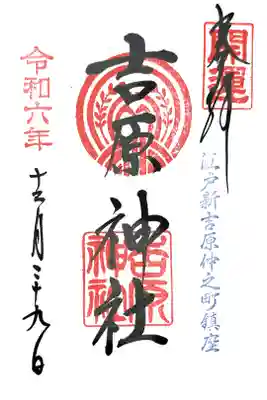 奉拝
開運
江戸新吉原仲之町鎮座
吉原神社
吉原神社
令和六年
十二月二十九日